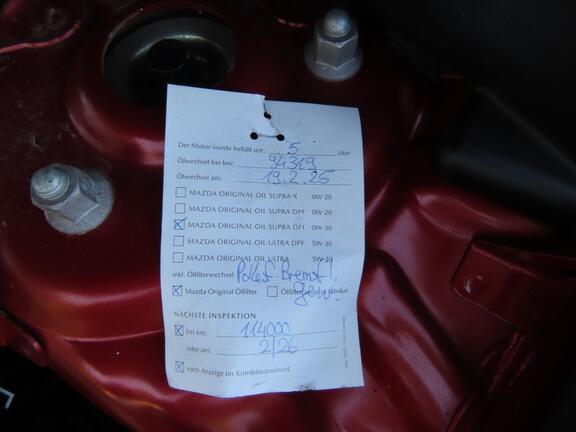 Der Motor wurde befüllt mit: 5 Liter
Ölwechsel bei km: 94319
Ölwechsel am: 19.2.25
MAZDA ORIGINAL OIL SUPRA-X 0W-20
MAZDA ORIGINAL OIL SUPRA DPF 0W-20
MAZDA ORIGINAL OIL SUPRA DPF 0W-30
MAZDA ORIGINAL OIL ULTRA DPF 5W-30
MAZDA ORIGINAL OIL ULTRA 5W-30
inkl. Ölfilterwechsel Pollenf. Bremsfl.
Mazda Original Ölfilter Ölfilter gew. Fabrikat
NÄCHSTE INSPEKTION
bei km: 114000
oder am: 2/26
nach Anzeige im Kombiinstrument